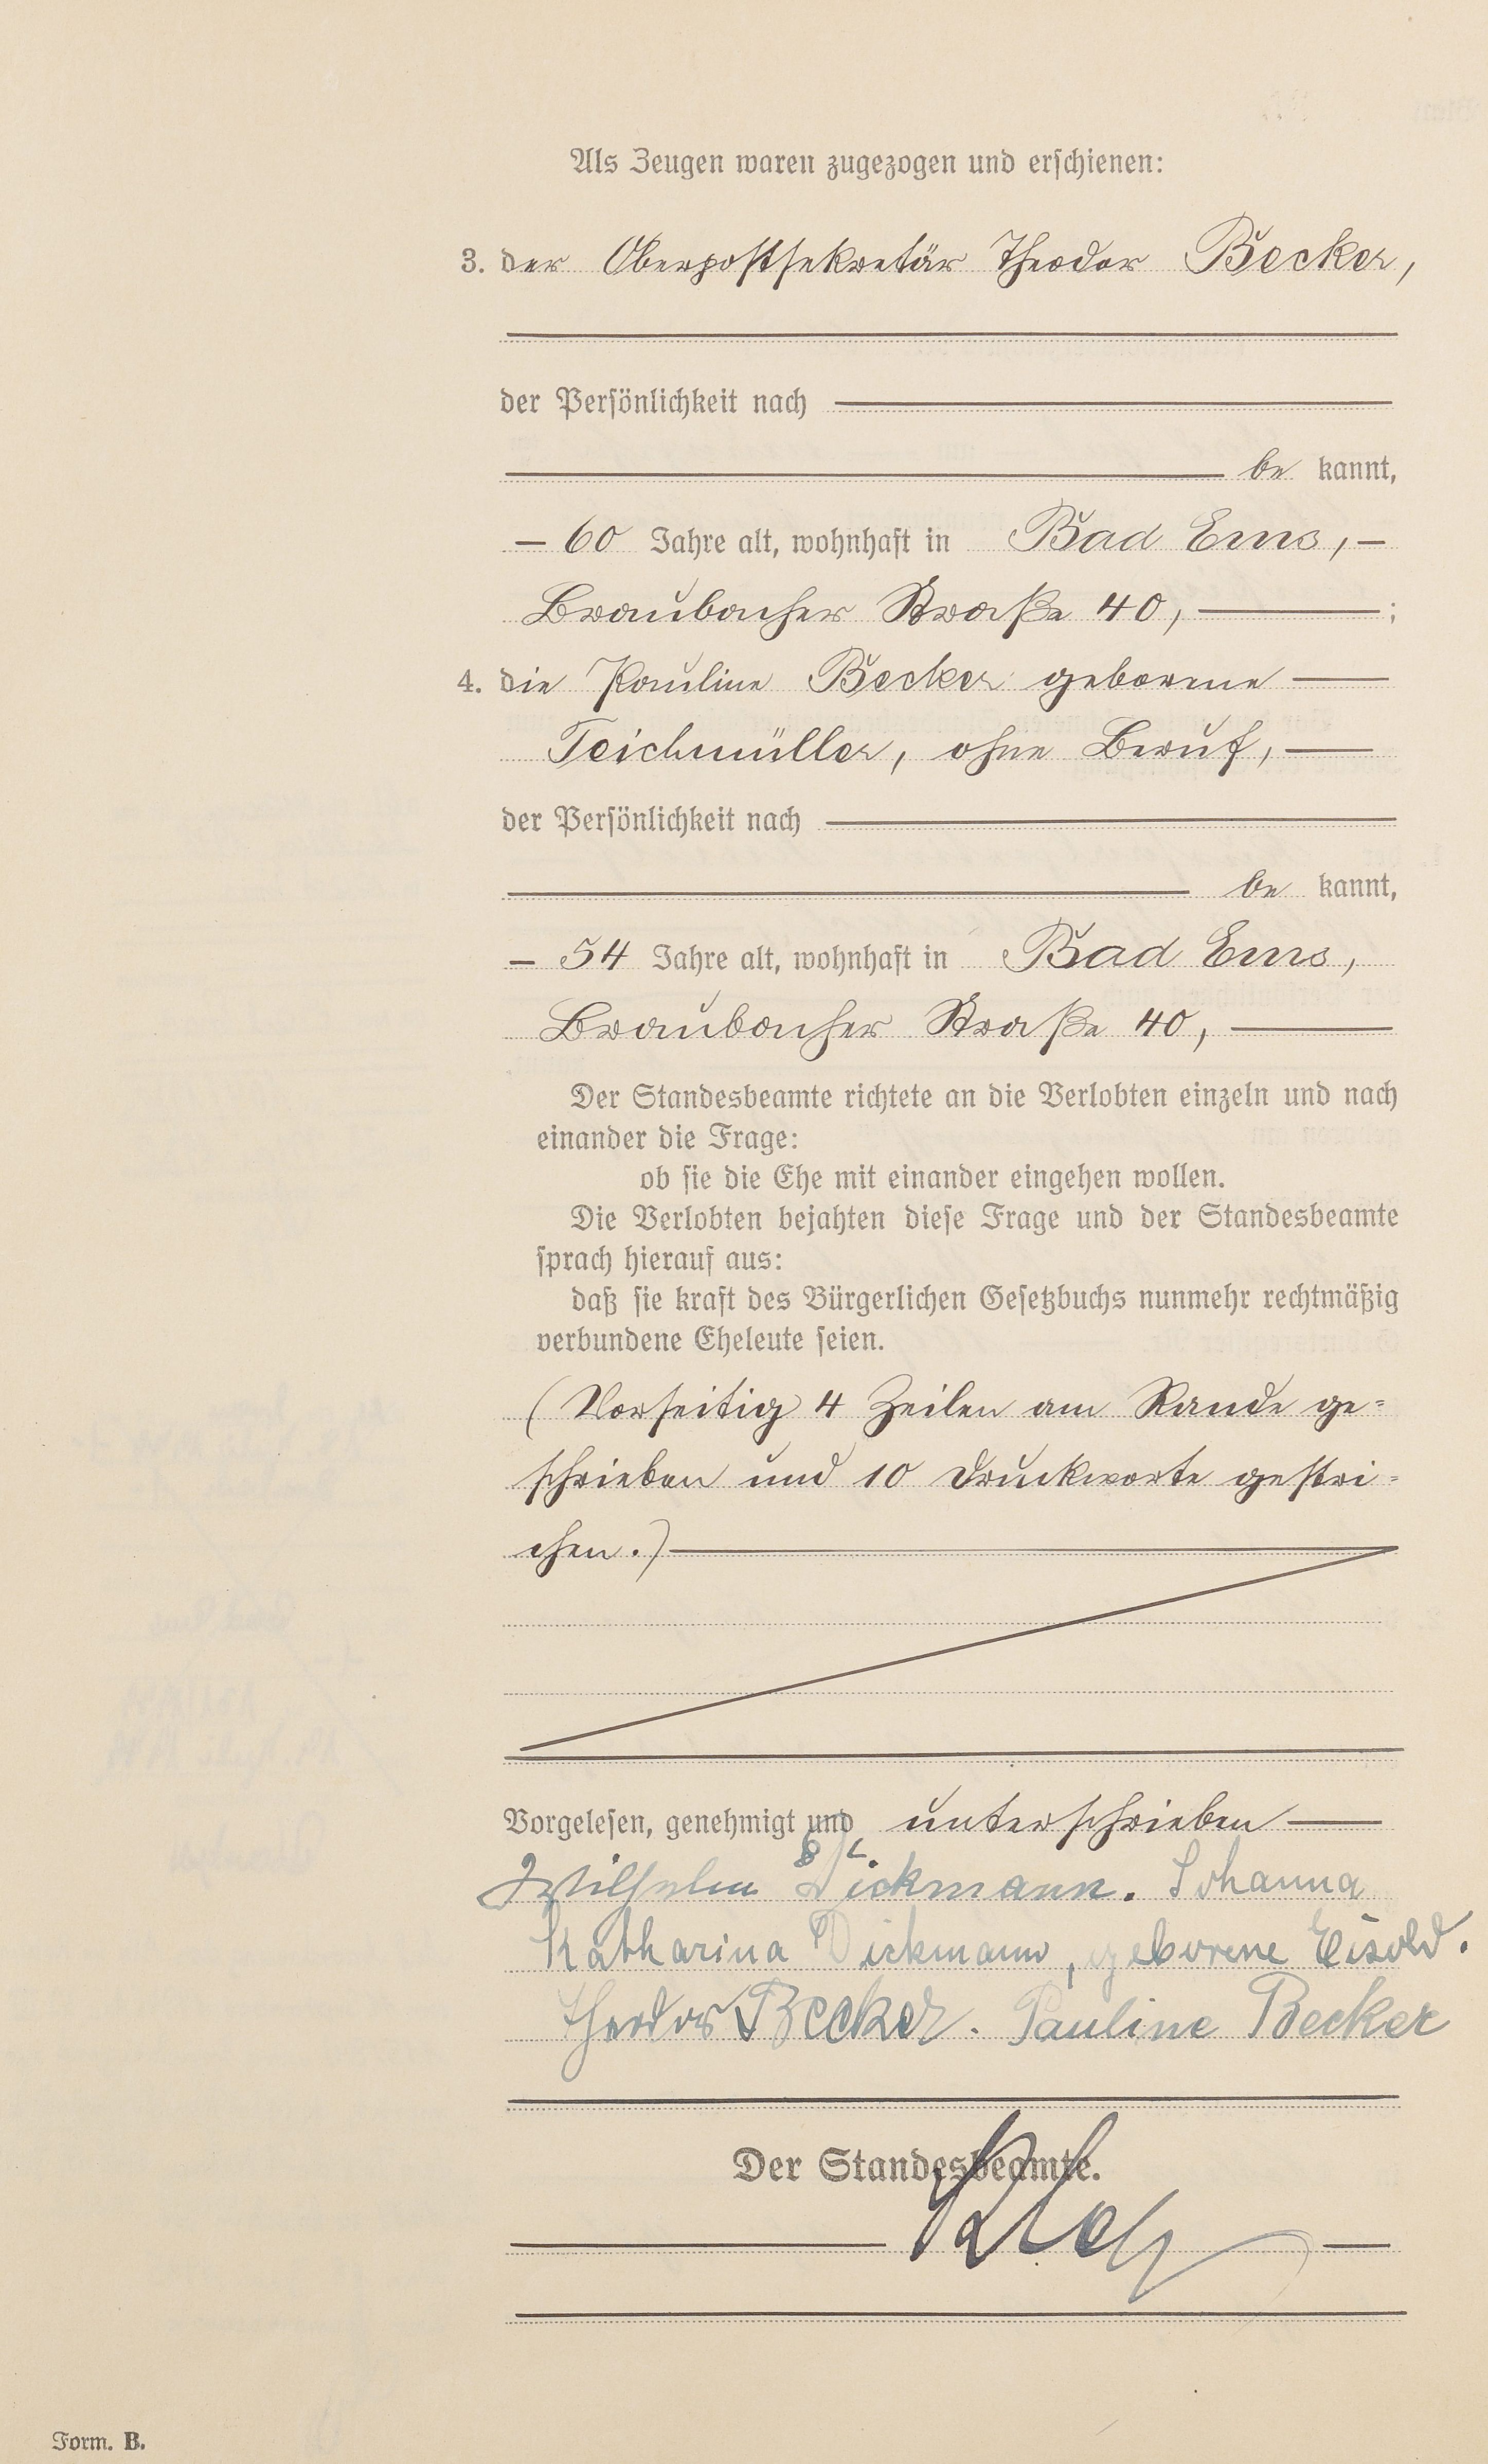 Als Zeugen waren zugezogen und erschienen:
3. der Oberpostsekretär Theodor Becker,
der Persönlichkeit nach
be kannt,
– 60 Jahre alt, wohnhaft in Bad Ems, –
Braubacher Straße 40, ;
4. die Pauline Becker geborene
Teichmüller, ohne Beruf,
der Persönlichkeit nach
be kannt,
– 54 Jahre alt, wohnhaft in Bad Ems,
Braubacher Straße 40,
Der Standesbeamte richtete an die Verlobten einzeln und nach
einander die Frage:
ob sie die Ehe mit einander eingehen wollen.
Die Verlobten bejahten diese Frage und der Standesbeamte
sprach hierauf aus:
daß sie kraft des Bürgerlichen Gesetzbuchs nunmehr rechtmäßig
verbundene Eheleute seien.
(Vorseitig 4 Zeilen am Rande ge=
schrieben und 10 Druckworte gestri=
chen.)
Vorgelesen, genehmigt und unterschrieben
Wilhelm Dickmann. Johanna
Katharina Dickmann, geborene Eisold.
Theodor Becker. Pauline Becker
Der Standesbeamte.
Form. B.